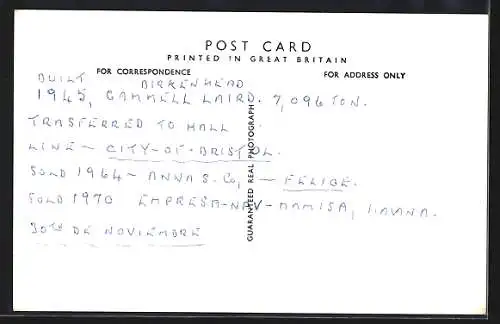 POST CARD
PRINTED IN GREAT BRITAIN
FOR CORRESPONDENCE
FOR ADDRESS ONLY
BUILT BIRKENHEAD
1945, CAMMELL LAIRD. 7,096 TON.
TRANSFERRED TO HALL
LINE – CITY-OF-BRISTOL.
SOLD 1964 – ANNA S. CO, – FELICE.
SOLD 1970 EMPRESA-NAV-MAMISA, HAVANA.
30TH DE NOVIEMBRE
GUARANTEED REAL PHOTOGRAPH